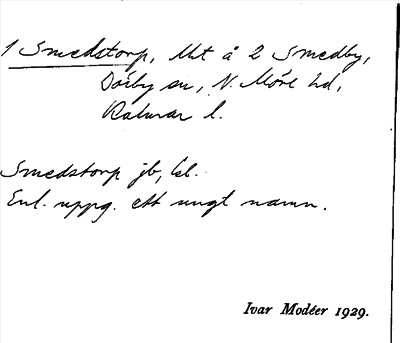 1 Smedstorp, Mt å 2 Smedby,
Dörby sn, N. Möre hd,
Kalmar l.
Smedstorp jb, kl.
Enl. uppg. ett ungt namn.
Ivar Modéer 1929.